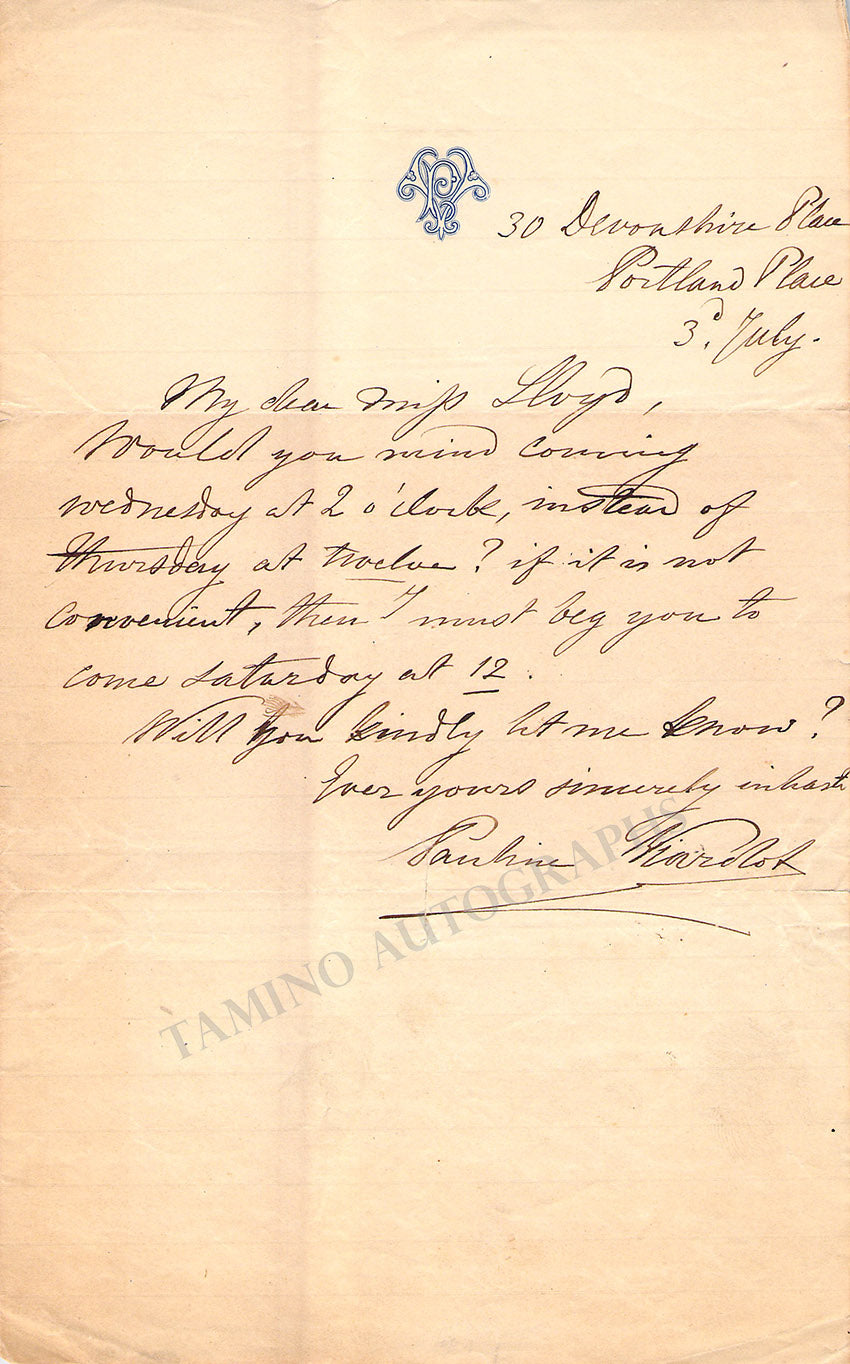 30 Devonshire Place
Portland Place
3d. July.
My dear Miss Lloyd,
Would you mind coming
wednesday at 2 o'clock, instead of
Thursday at twelve? if it is not
convenient, then I must beg you to
come saturday at 12.
Will you kindly let me know?
Ever yours sincerely in haste
Pauline Viardot
TAMINO AUTOGRAPHS